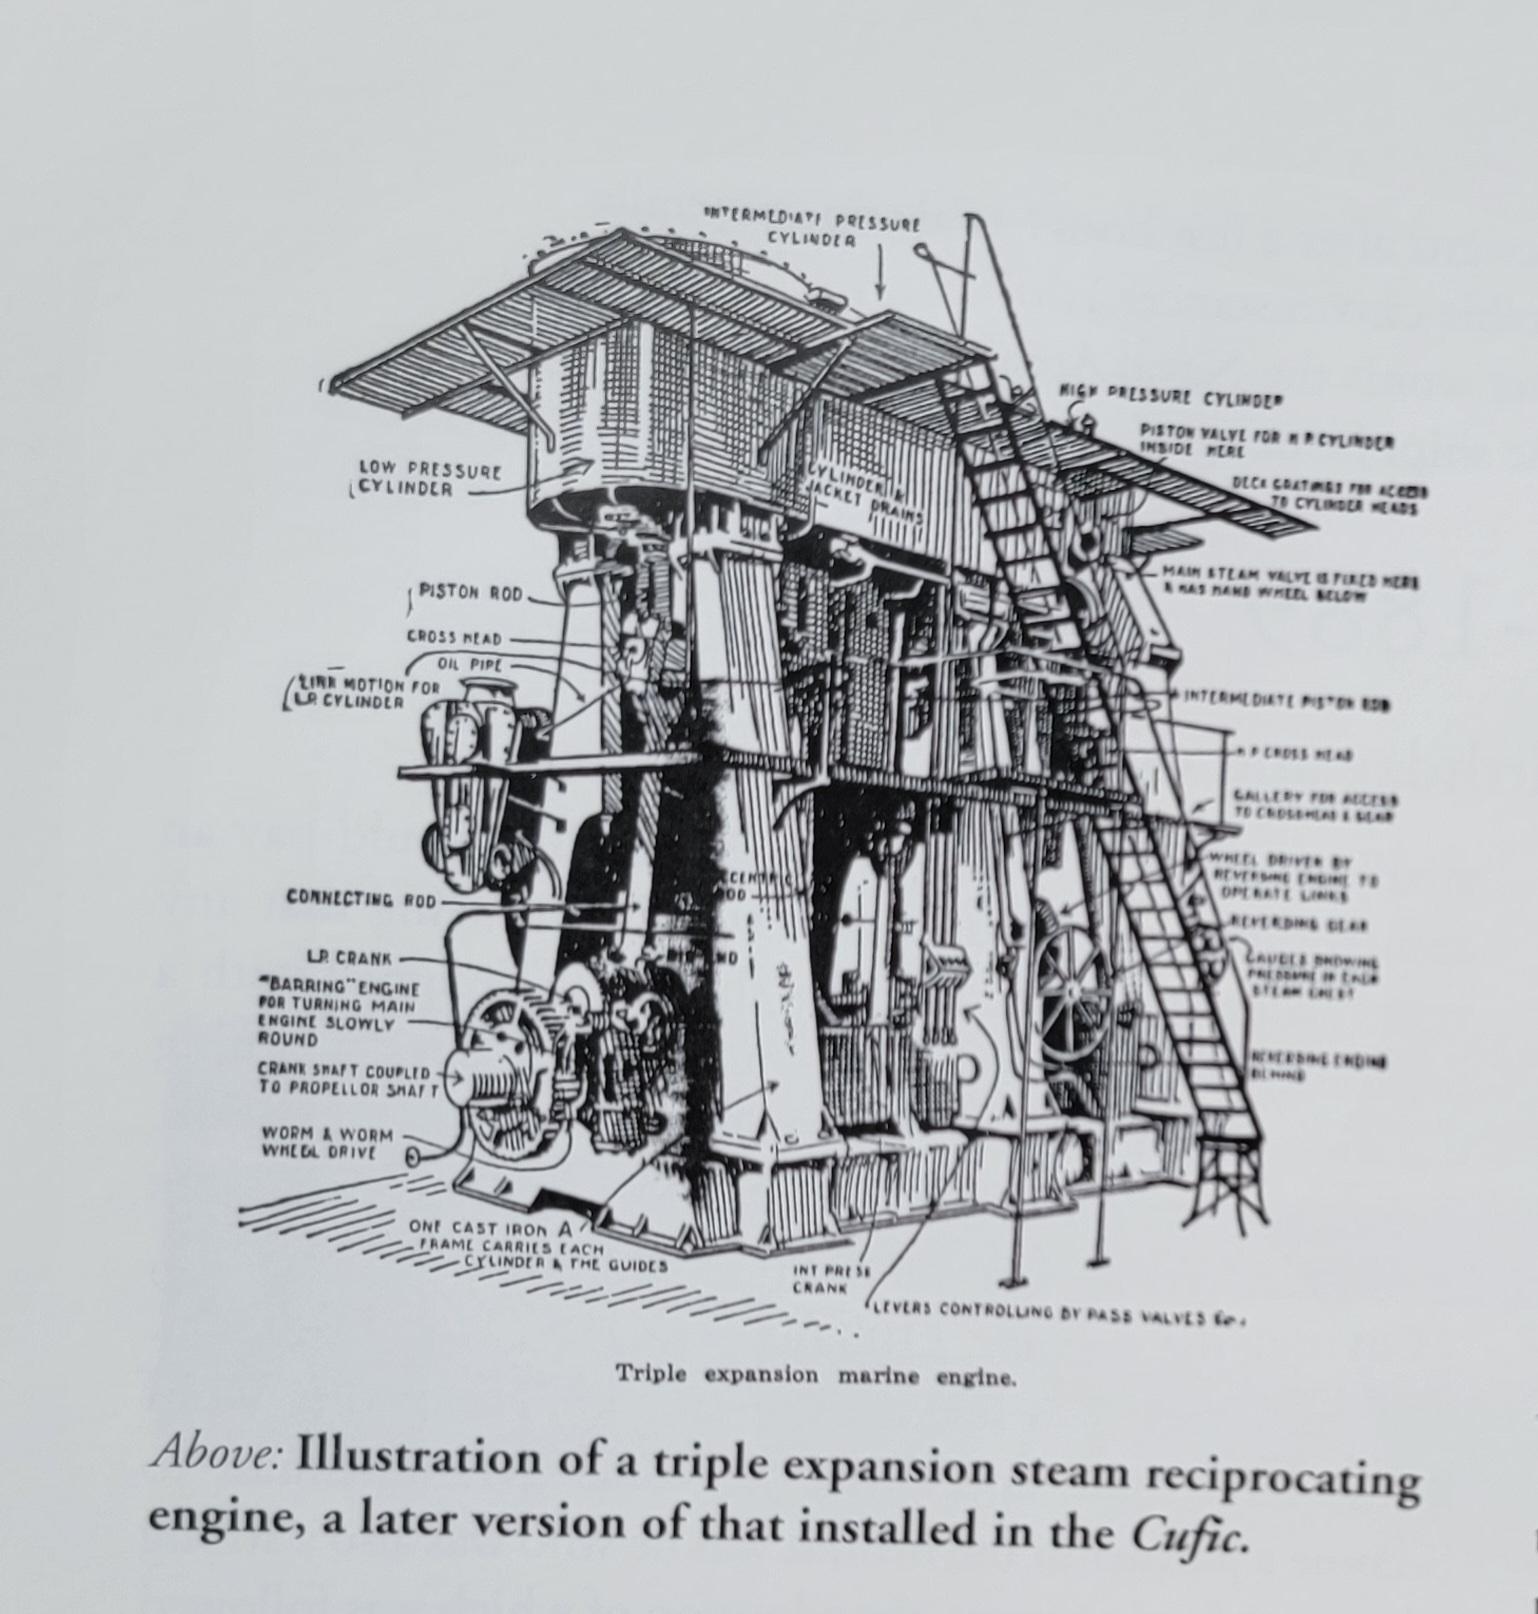 INTERMEDIATE PRESSURE
CYLINDER
HIGH PRESSURE CYLINDER
PISTON VALVE FOR H P CYLINDER
INSIDE HERE
DECK GRATINGS FOR ACCESS
TO CYLINDER HEADS
LOW PRESSURE
CYLINDER
CYLINDER &
JACKET DRAINS
MAIN STEAM VALVE IS FIXED HERE
& HAS HAND WHEEL BELOW
PISTON ROD
CROSS HEAD
OIL PIPE
LINK MOTION FOR
L.P. CYLINDER
INTERMEDIATE PISTON ROD
H P CROSS HEAD
GALLERY FOR ACCESS
TO CROSSHEAD & GEAR
WHEEL DRIVEN BY
REVERSING ENGINE TO
OPERATE LINKS
CONNECTING ROD
REVERSING GEAR
L.P. CRANK
GAUGES SHOWING
PRESSURE IN EACH
STEAM CHEST
"BARRING" ENGINE
FOR TURNING MAIN
ENGINE SLOWLY
ROUND
REVERSING ENGINE
BEHIND
CRANK SHAFT COUPLED
TO PROPELLOR SHAFT
WORM & WORM
WHEEL DRIVE
ONE CAST IRON A
FRAME CARRIES EACH
CYLINDER & THE GUIDES
INT PRESS
CRANK
LEVERS CONTROLLING BY PASS VALVES &c.
Triple expansion marine engine.
Above: Illustration of a triple expansion steam reciprocating
engine, a later version of that installed in the Cufic.